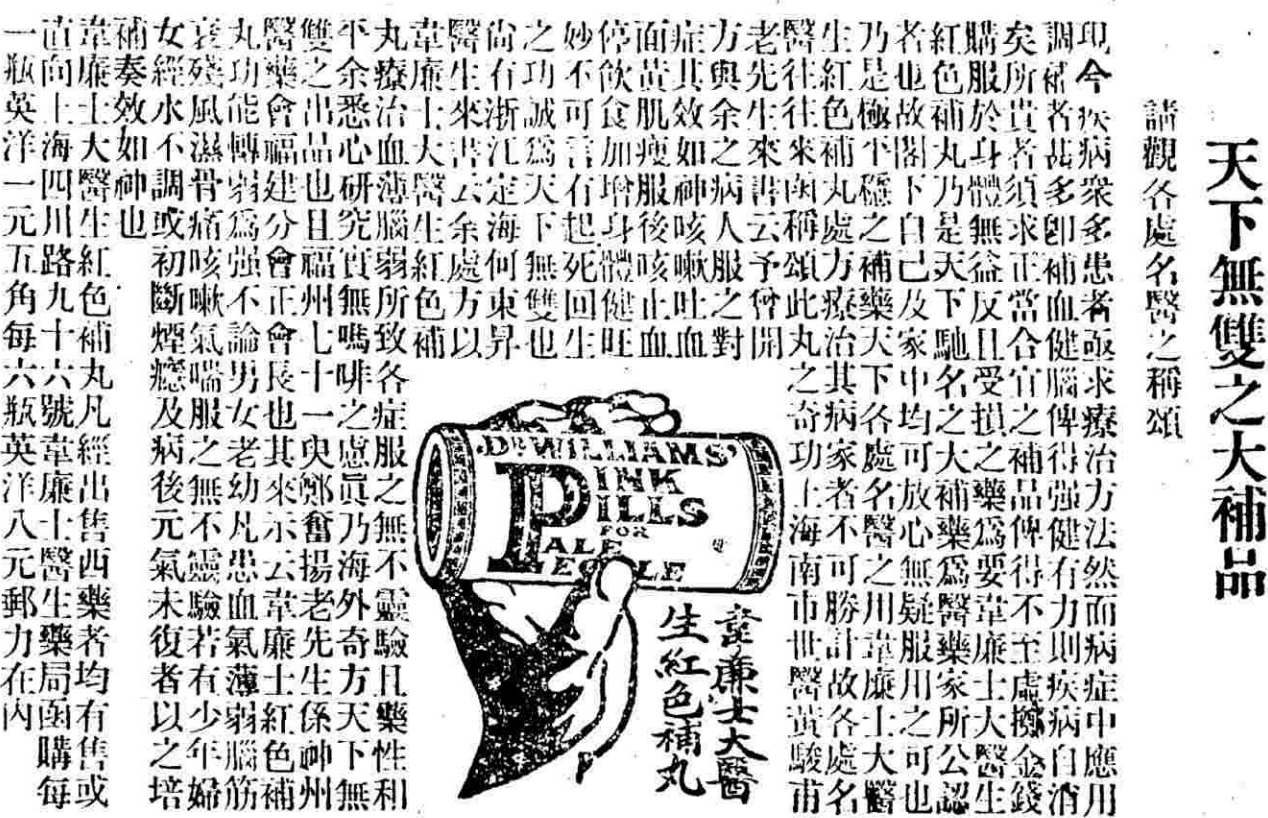 天下無雙之大補品
請觀各處名醫之稱頌
現今疾病衆多患者亟求療治方法然而病症中應用
調補者甚多卽補血健腦俾得强健有力則疾病自消
矣所貴者須求正當合宜之補品俾得不至虛擲金錢
購服於身體無益反且受損之藥爲要韋廉士大醫生
紅色補丸乃是天下馳名之大補藥爲醫藥家所公認
者也故閣下自己及家中均可放心無疑服用之可也
乃是極平穩之補藥天下各處名醫之用韋廉士大醫
生紅色補丸處方療治其病家者不可勝計故各處名
醫往往來函稱頌此丸之奇功上海南市世醫黃駿甫
老先生來書云予曾開
方與余之病人服之對
症其效如神咳嗽吐血
面黃肌瘦服後咳止血
停飲食加增身體健旺
妙不可言有起死回生
之功誠爲天下無雙也
尙有浙江定海何東昇
醫生來書云余處方以
韋廉士大醫生紅色補
丸療治血薄腦弱所致各症服之無不靈驗且藥性和
平余悉心研究實無嗎啡之慮眞乃海外奇方天下無
雙之出品也且福州七十一叟鄭奮揚老先生係神州
醫藥會福建分會正會長也其來示云韋廉士紅色補
丸功能轉弱爲强不論男女老幼凡患血氣薄弱腦筋
衰殘風濕骨痛咳嗽氣喘服之無不靈驗若有少年婦
女經水不調或初斷煙癮及病後元氣未復者以之培
補奏效如神也
韋廉士大醫生紅色補丸凡經出售西藥者均有售或
直向上海四川路九十六號韋廉士醫生藥局函購每
一瓶英洋一元五角每六瓶英洋八元郵力在內
DR WILLIAMS'
PINK
PILLS
FOR
PALE
PEOPLE
韋廉士大醫
生紅色補丸